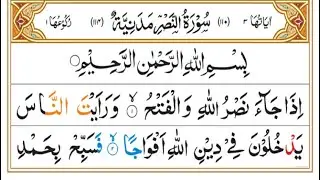 اٰيَاتُهَا ٣ (١١٠) سُوْرَةُ النَّصْرِ مَدَنِيَّةٌ رُكُوْعُهَا
بِسْمِ اللّٰهِ الرَّحْمٰنِ الرَّحِيْمِ ۝
اِذَا جَآءَ نَصْرُ اللّٰهِ وَالْفَتْحُ ۝ وَرَاَيْتَ النَّاسَ
يَدْخُلُوْنَ فِيْ دِيْنِ اللّٰهِ اَفْوَاجًا ۝ فَسَبِّحْ بِحَمْدِ